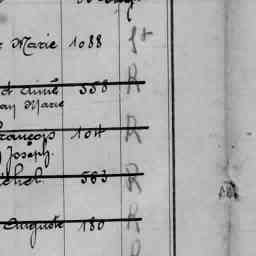 Marie 1088 St
Aimé 558 R
Marie
François 104 R
Joseph.
chel 563 R
Auguste 180 R
R